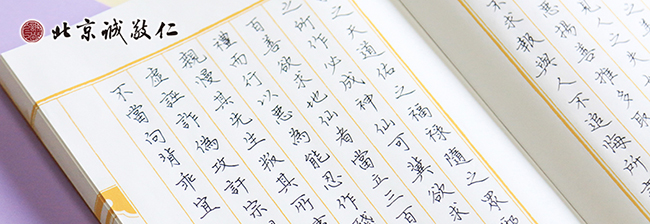 北京诚敬仁
見人之
惡揚善推多取
不求報與人不追悔所
之天道佑之福祿隨之眾邪
之所作必成神仙可冀欲求
百善欲求地仙者當立三百
禮而行以惡為能忍作殘
親慢其先生叛其所
虛誣詐偽攻訐宗
不當向背乖宜